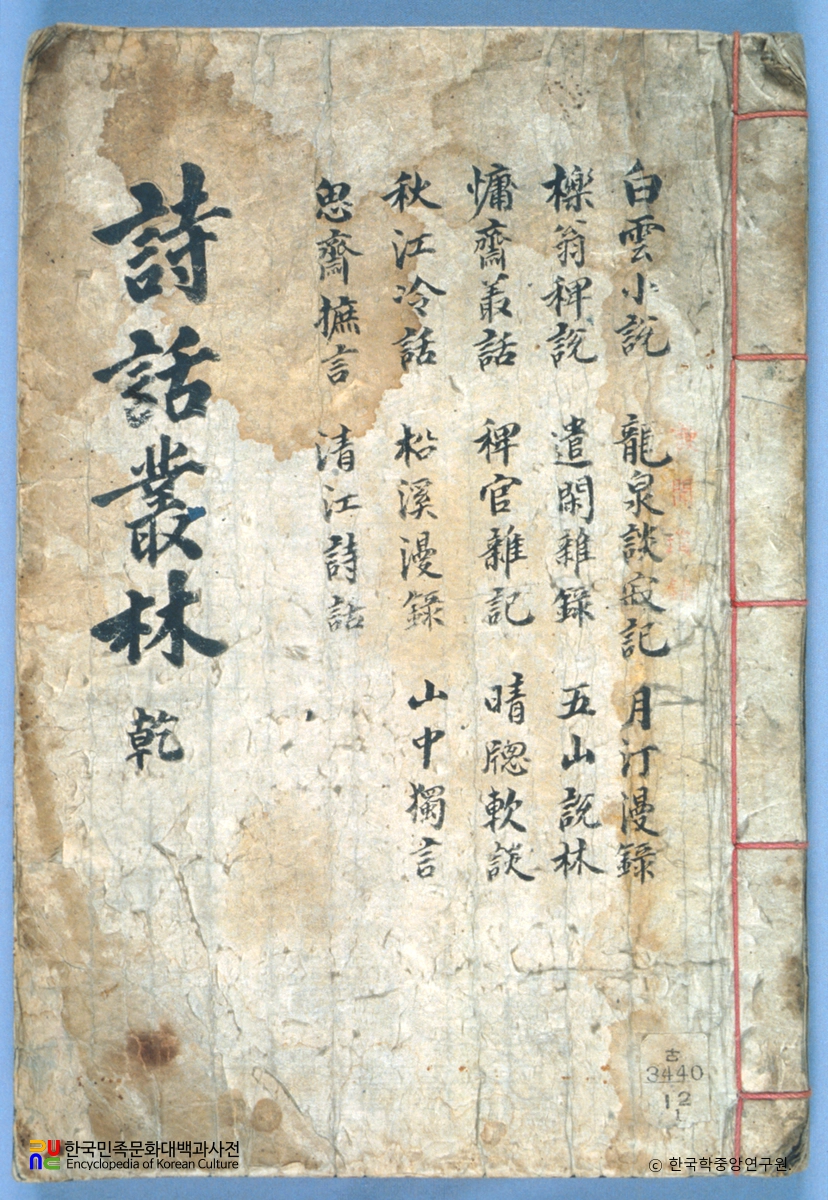 白雲小說 龍泉談寂記 月汀漫錄
櫟翁稗說 遣閑雜錄 五山說林
慵齋叢話 稗官雜記 晴牕軟談
秋江冷話 松溪漫錄 山中獨言
思齋摭言 清江詩話
詩話叢林 乾
古
3440
12
1
한국민족문화대백과사전
Encyclopedia of Korean Culture
© 한국학중앙연구원.